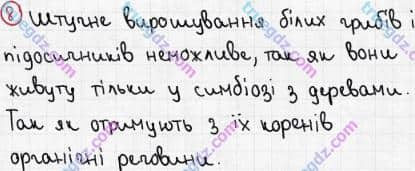 8 Штучне вирощування білих грибів і
підосичників неможливе, так як вони
живуть тільки у симбіозі з деревами.
Так як отримують з їх коренів
органічні речовини.